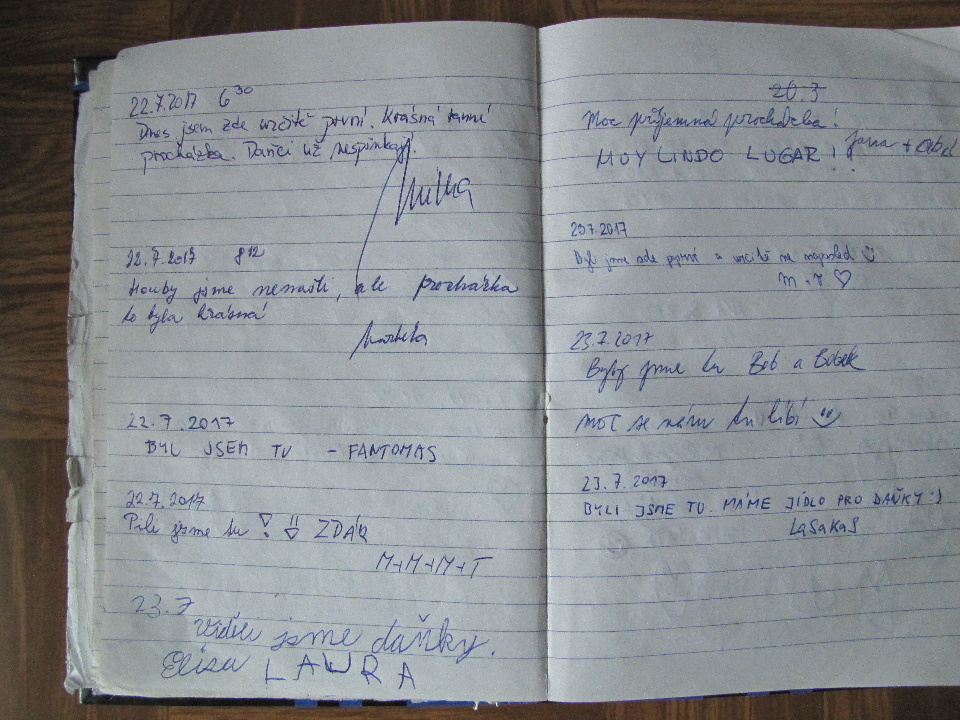 22.7.2017 6³⁰
Dnes jsem zde určitě první. Krásná ranní
procházka. Daňci už nespinkají.
22.7.2017 8 12
Houby jsme nenašli, ale procházka
to byla krásná
Markéta
22.7.2017
BYL JSEM TU - FANTOMAS
22.7.2017
Pili jsme tu ZDÁR
M+M+M+T
23.7
Viděli jsme daňky.
Elisa LAURA
20.7
Moc příjemná procházka!
MUY LINDO LUGAR! Jana +
23.7.2017
Byli jsme zde poprvé a určitě ne naposled
M + V ♡
23.7.2017
Byly jsme tu Bob a Bobek
moc se nám tu líbí
23.7.2017
BYLI JSME TU. MÁME JÍDLO PRO DAŇKY :)
LaSaKaS